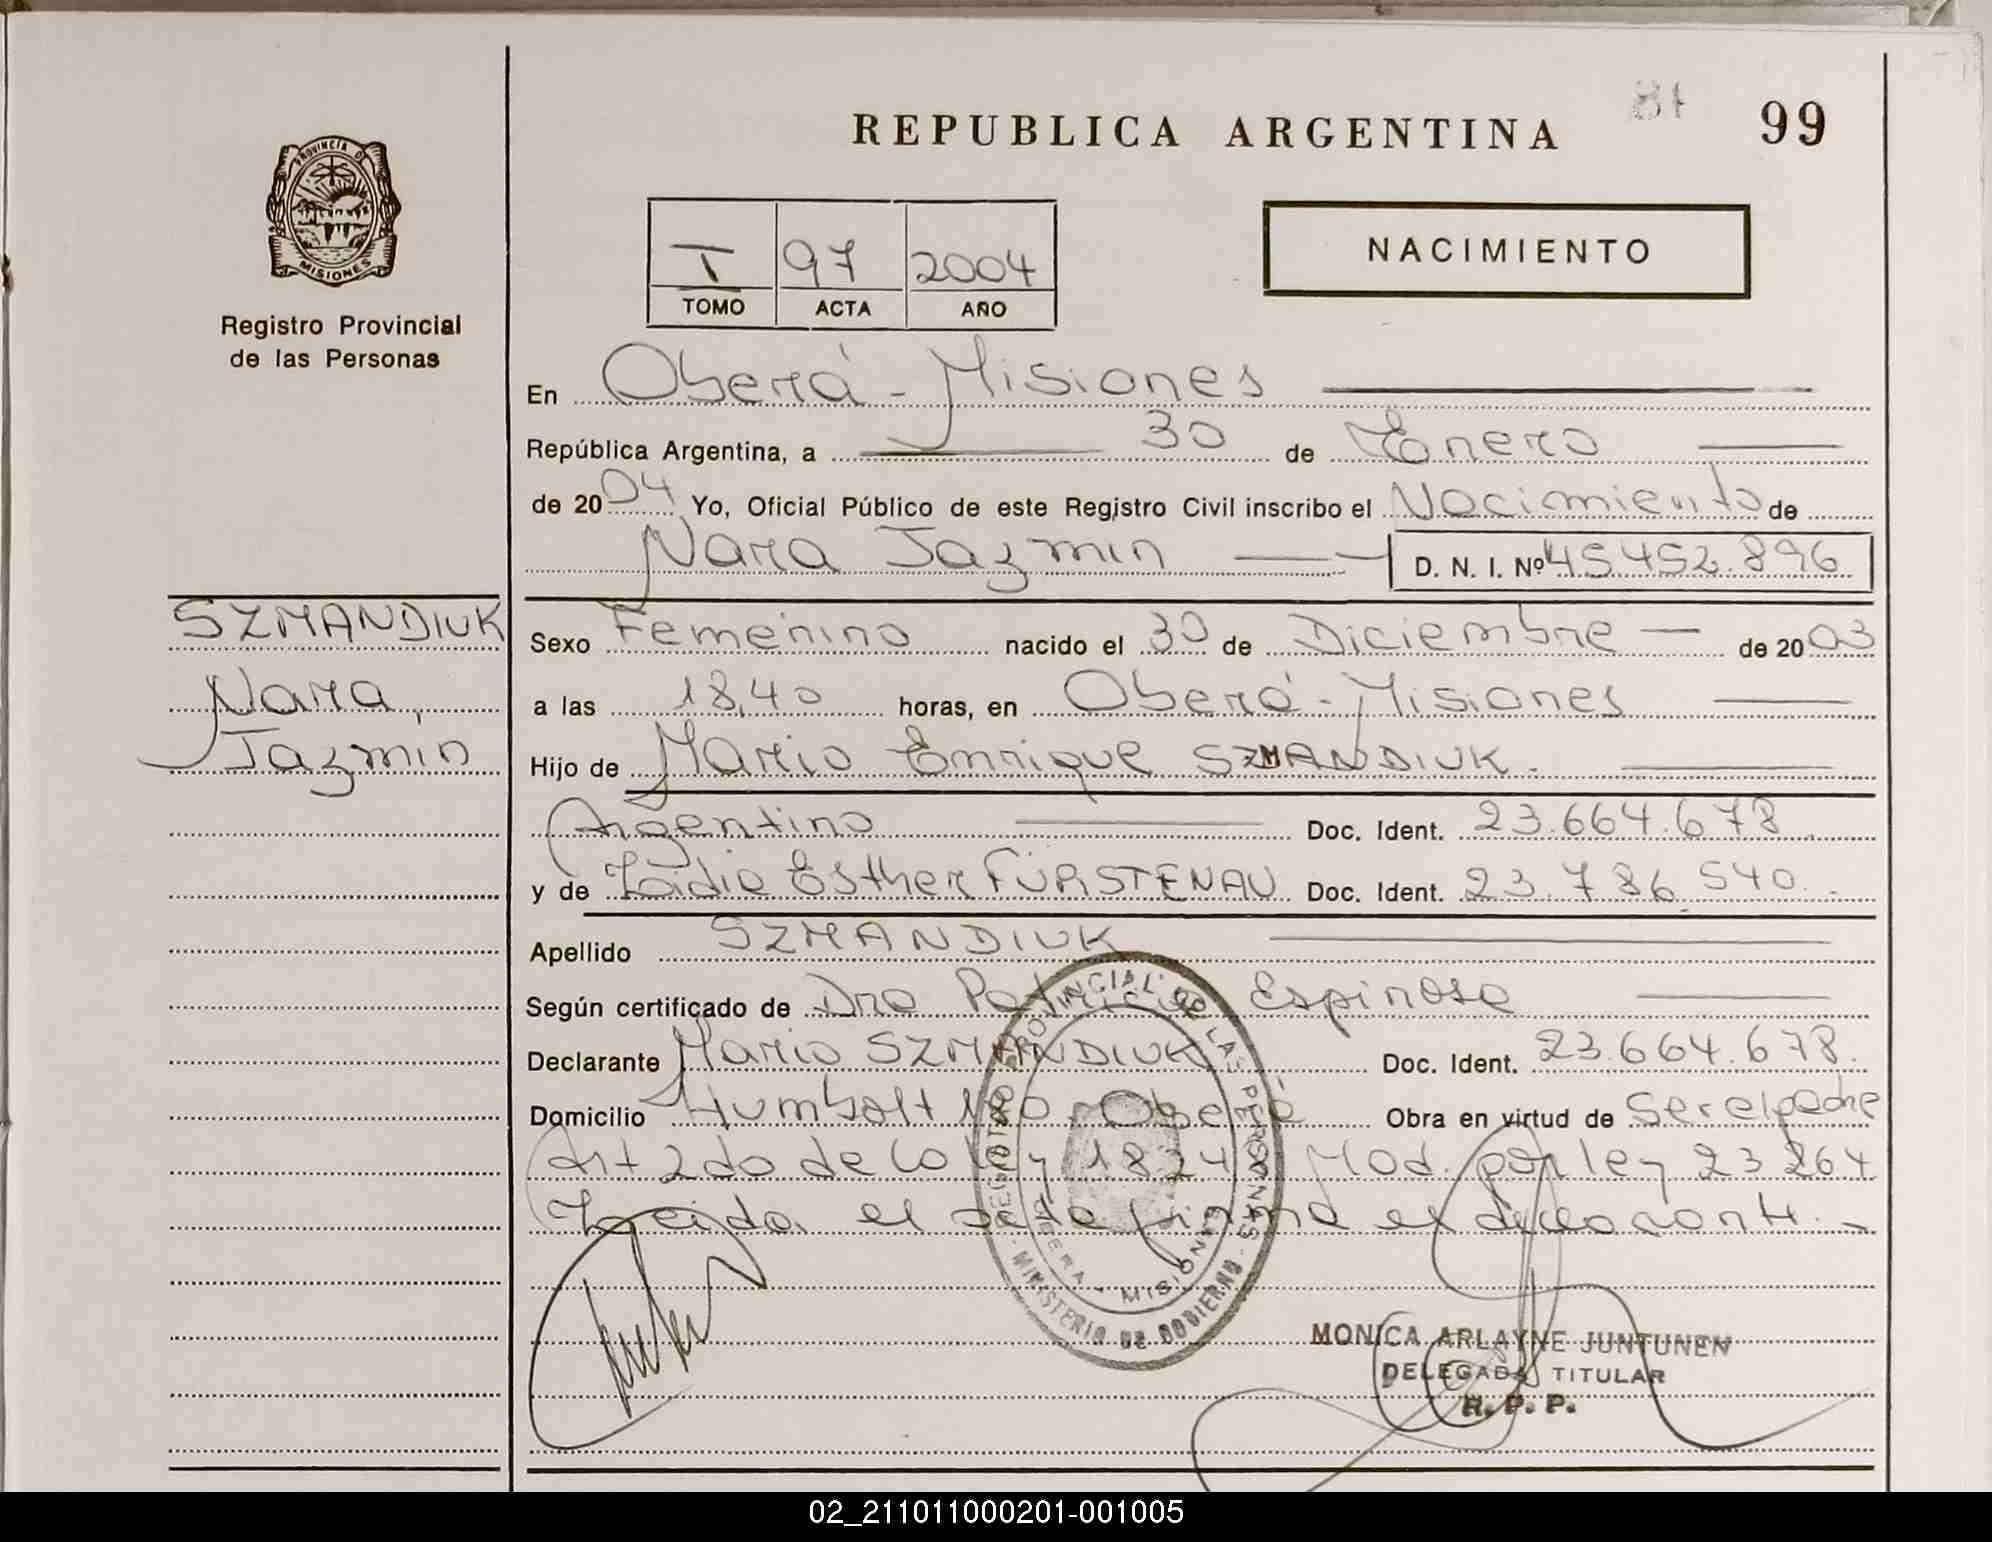 REPUBLICA ARGENTINA
81 99
PROVINCIA DE
MISIONES
Registro Provincial
de las Personas
T 97 2004
TOMO ACTA AÑO
NACIMIENTO
En Oberá - Misiones
República Argentina, a 30 de Enero
de 2004 Yo, Oficial Público de este Registro Civil inscribo el Nacimiento de
Nara Jazmin D. N. I. Nº 45.452.896
SZMANDIUK
Nara,
Jazmin
Sexo Femenino nacido el 30 de Diciembre de 2003
a las 18,40 horas, en Oberá - Misiones
Hijo de Mario Enrique SZMANDIUK.
Argentino Doc. Ident. 23.664.678
y de Lidia Esther FÜRSTENAU Doc. Ident. 23.786.540.
Apellido SZMANDIUK
Según certificado de Dra Patricia Espinosa
Declarante Mario SZMANDIUK Doc. Ident. 23.664.678.
Domicilio Humbolt 180 Oberá Obra en virtud de Ser el padre
Art 2do de la ley 1824 Mod. por ley 23264
Leida el acta firma el declarante.
REGISTRO PROVINCIAL DE LAS PERSONAS
MINISTERIO DE GOBIERNO
MISIONES
MONICA ARLAYNE JUNTUNEN
DELEGADA TITULAR
R. P. P.
02_211011000201-001005